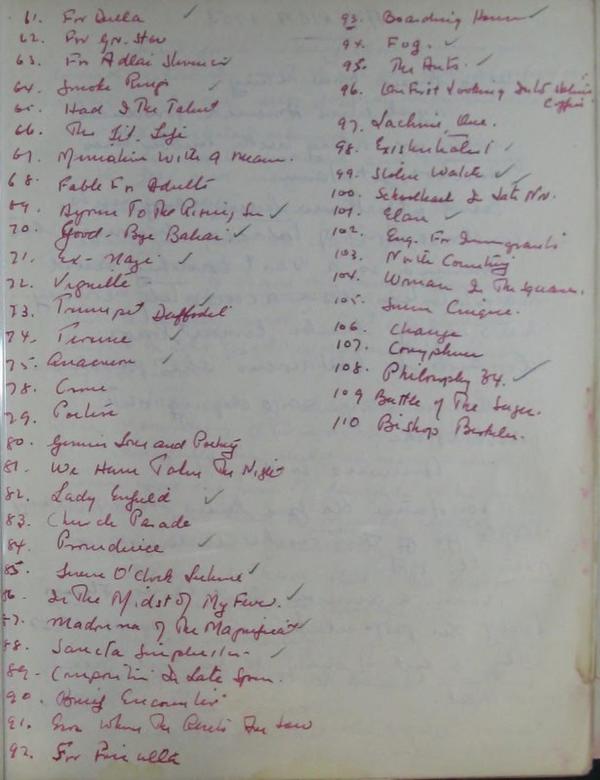 61. For Della
62. For Gr. Stew
63. For Adlai Stevenson
64. Smoke Rings
65. Had I The Talent
66. The Lit. Life
67. Mountain With a Meaning.
68. Fable For Adults
69. Hymn To The Rising Sun
70. Good-Bye Bahai
71. Ex-Nazi
72. Vignette
73. Trumpet Daffodil
74. Terence
75. Anacreon
78.
79. Poetics
80. Genius Love and Poetry
81. We Have Taken The Night
82. Lady Enfield
83. Church Parade
84. Providence
85. Seven O'Clock Lecture
86. In The Midst of My Fever.
87. Madonna of The Magnificat
88. Sancta Simplicitas
89. Composition In Late Spring.
90. Encounter
91. Even When The Are Low
92. For Priscilla
93. Boarding House
94. Fog.
95. The Ants.
96. On First Looking Into Stalin's Coffin
97. Lachine, Que.
98. Existentialist
99. Stolen Watch
100. Schoolhead In Late Nov.
101. Elan
102. Eng. For Immigrants
103. North Country
104. Woman In The Square.
105. Suum Cuique.
106. Change
107. Coryphene
108. Philosophy 34.
109 Battle of The Sages.
110 Bishop Berkeley.